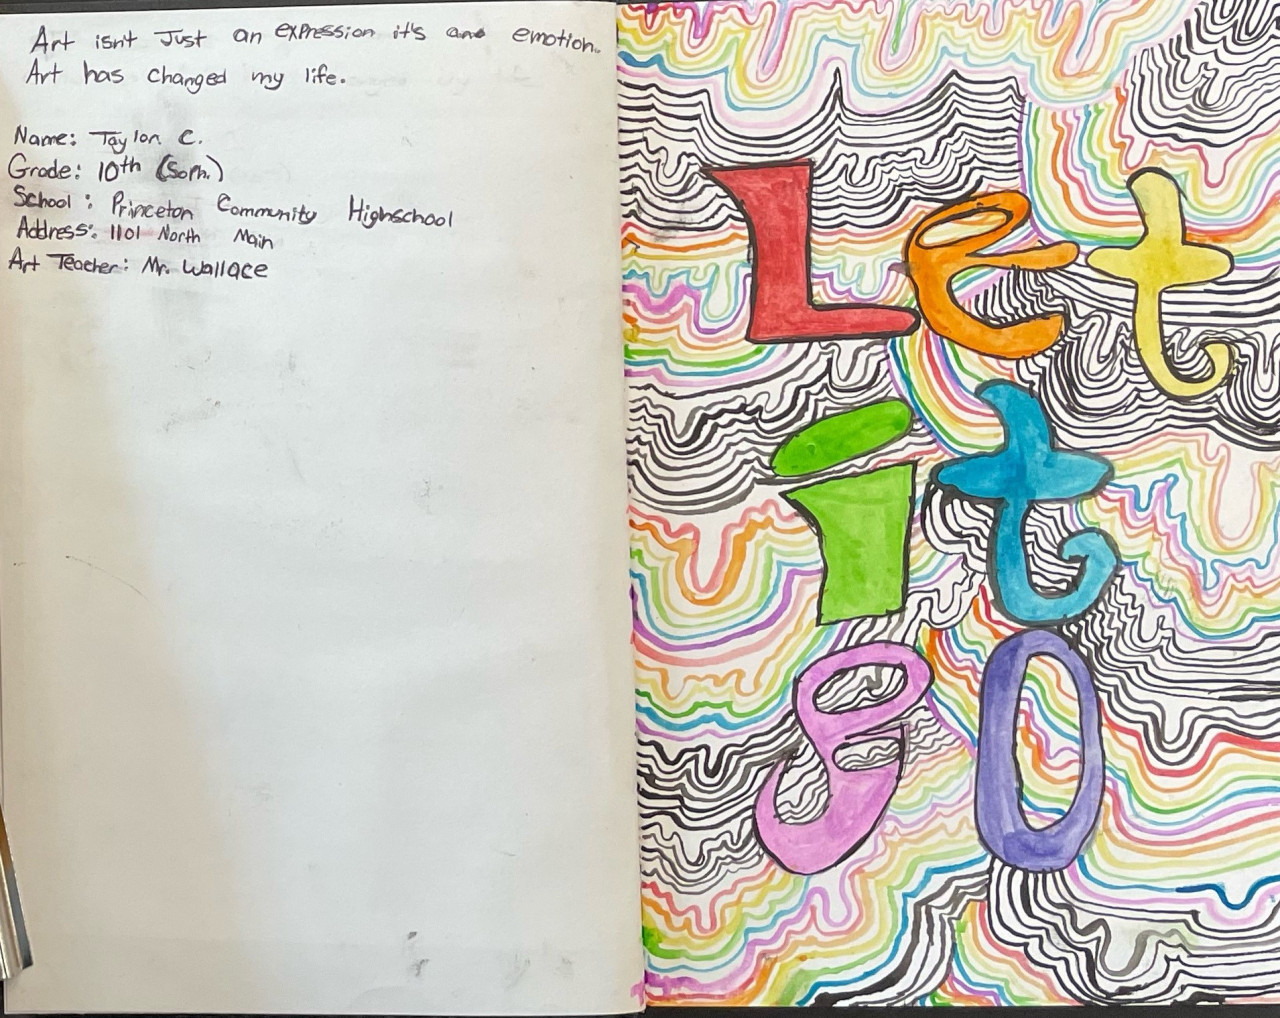 Art isn't Just an expression it's and emotion.
Art has changed my life.
Name: Taylon C.
Grade: 10th (Soph.)
School: Princeton Community Highschool
Address: 1101 North Main
Art Teacher: Mr. Wallace
Let
it
go